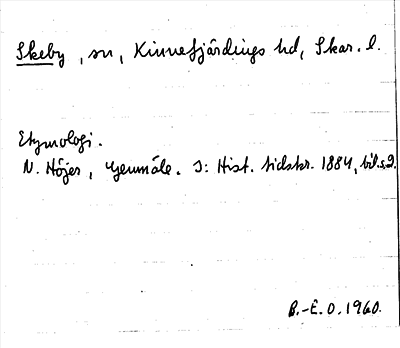 Skeby, sn, Kinnefjärdings hd, Skar. l.
Etymologi.
N. Höjer, Genmäle. I: Hist. tidskr. 1884, bil. s. 9.
B.-E. O. 1960.